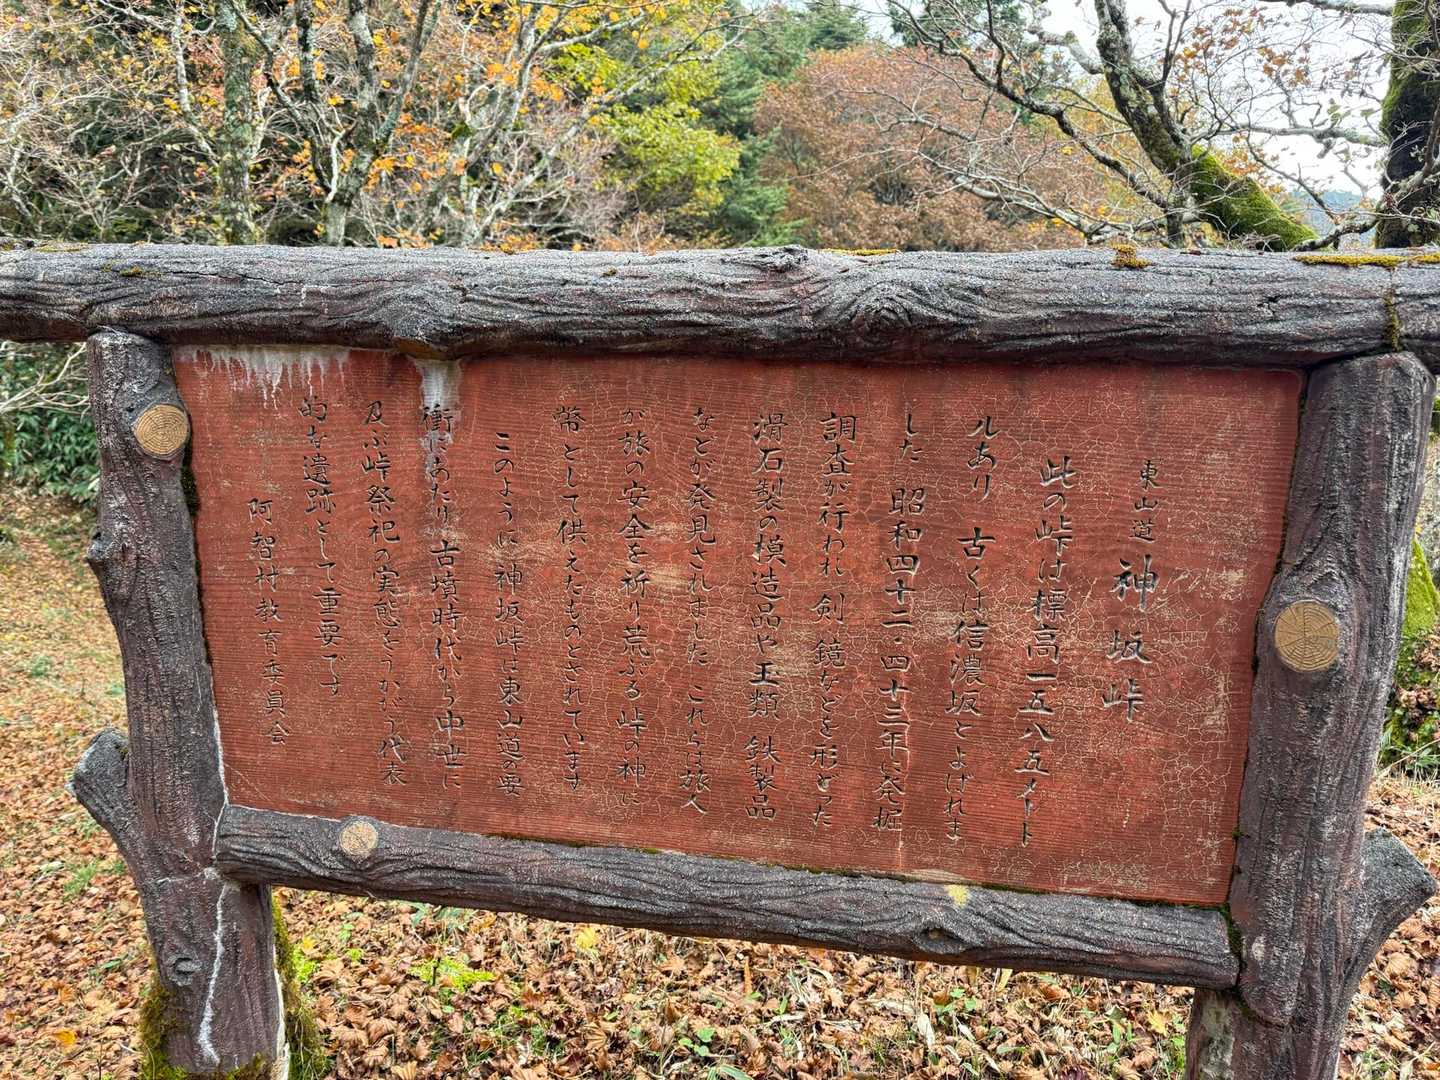 東山道 神坂峠
此の峠は標高一五八五メート
ルあり 古くは信濃坂とよばれま
した 昭和四十二・四十三年に発掘
調査が行われ 剣 鏡などを形どった
滑石製の模造品や玉類 鉄製品
などが発見されました これらは旅人
が旅の安全を祈り荒ぶる峠の神に
幣として供えたものとされています
このように神坂峠は東山道の要
衝にあたり古墳時代から中世に
及ぶ峠祭祀の実態をうかがう代表
的な遺跡として重要です
阿智村教育委員会